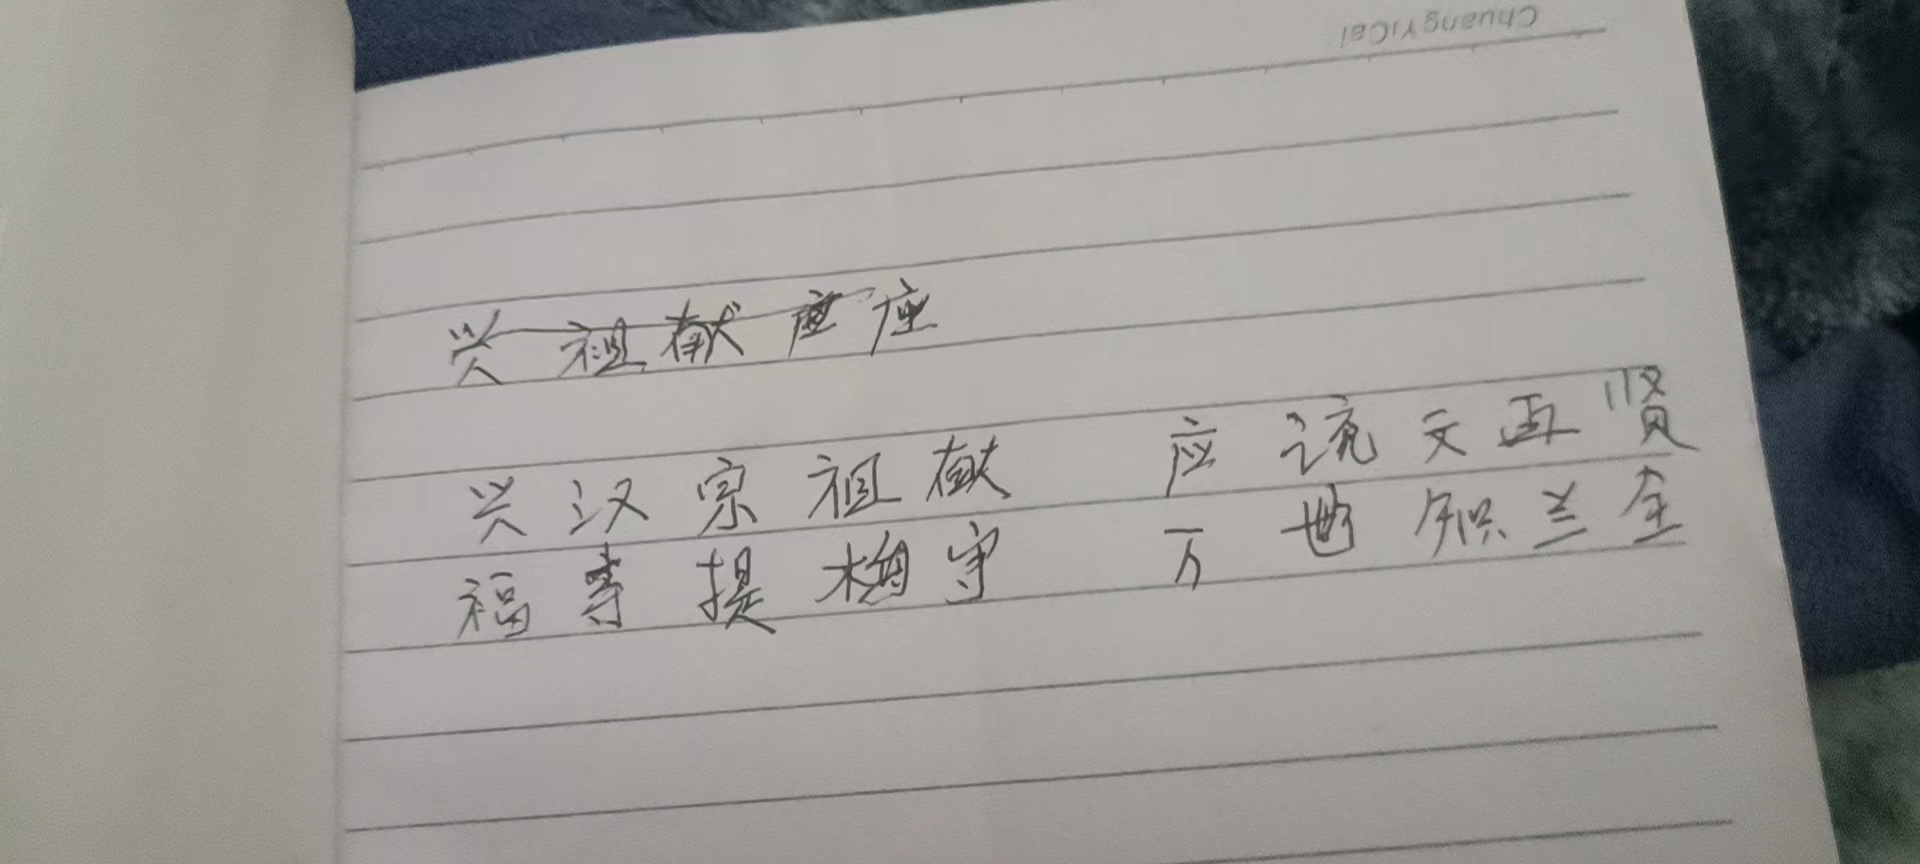 ChuangYiCai
兴祖献应座
兴汉宗祖献 应流文再贤
福寿提梅守 万世知兰全